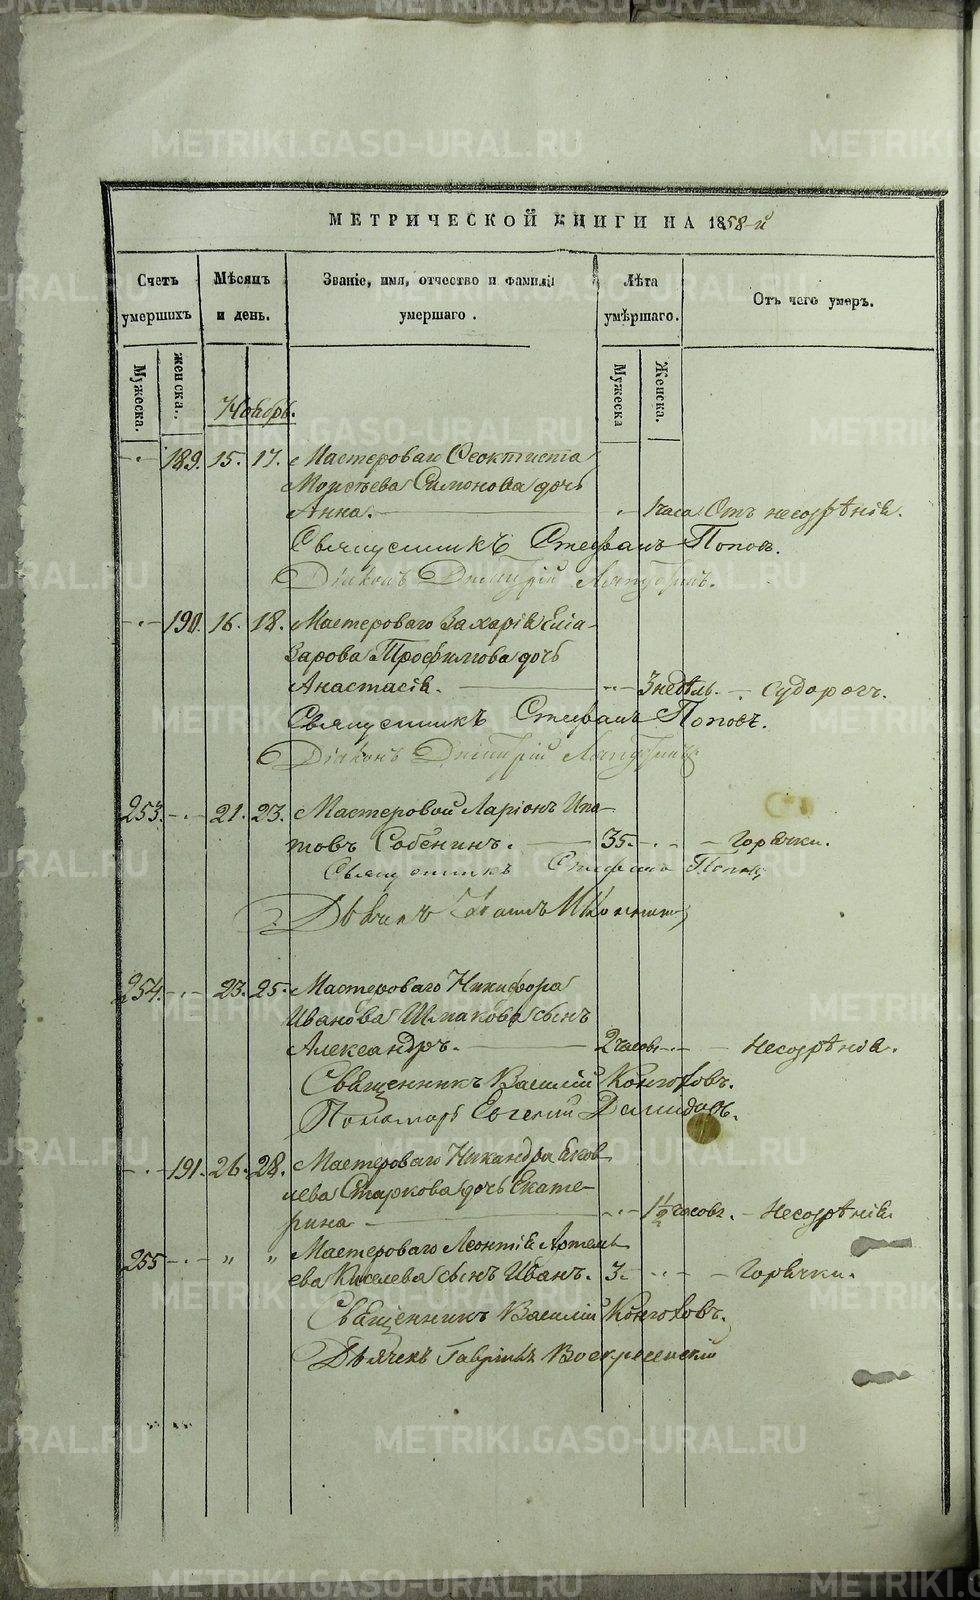 МЕТРИЧЕСКОЙ КНИГИ НА 1858-й
Счетъ умершихъ
Мѣсяцъ и день.
Званіе, имя, отчество и фамилія умершаго.
Лѣта умѣршаго.
Отъ чего умеръ.
Мужеска.
женска.
Мужеска
Женска.
Ноябрь.
189. 15. 17. Мастероваго Ѳеоктиста
Моисѣева Симонова дочь
Анна. 1 часа Отъ несозрѣнія.
Священникъ Стефанъ Поповъ.
Діаконъ Димитрій
190. 16. 18. Мастероваго Захарія Еліа-
зарова Трофимова дочь
Анастасія. 3 недѣль. Судорогъ.
Священникъ Стефанъ Поповъ.
Діаконъ Димитрій
253. 21. 23. Мастеровой Ларіонъ Ипа-
товъ Собенинъ. 35. Горячки.
Священникъ Стефанъ Поповъ
Дьячекъ
254. 23. 25. Мастероваго Никифора
Иванова Шмакова сынъ
Александръ. 2 часовъ Несозрѣнія.
Священникъ Василій Конюховъ.
Пономарь Евгений Демидовъ.
191. 26. 28. Мастероваго Никандра Яков-
лева Старкова дочь Екате-
рина 1½ часовъ. Несозрѣнія.
255 " " Мастероваго Леонтія Артемь-
ева Киселева сынъ Иванъ. 3. Горячки.
Священникъ Василій Конюховъ.
Дьячекъ Гавріилъ Воскресенский
METRIKI.GASO-URAL.RU